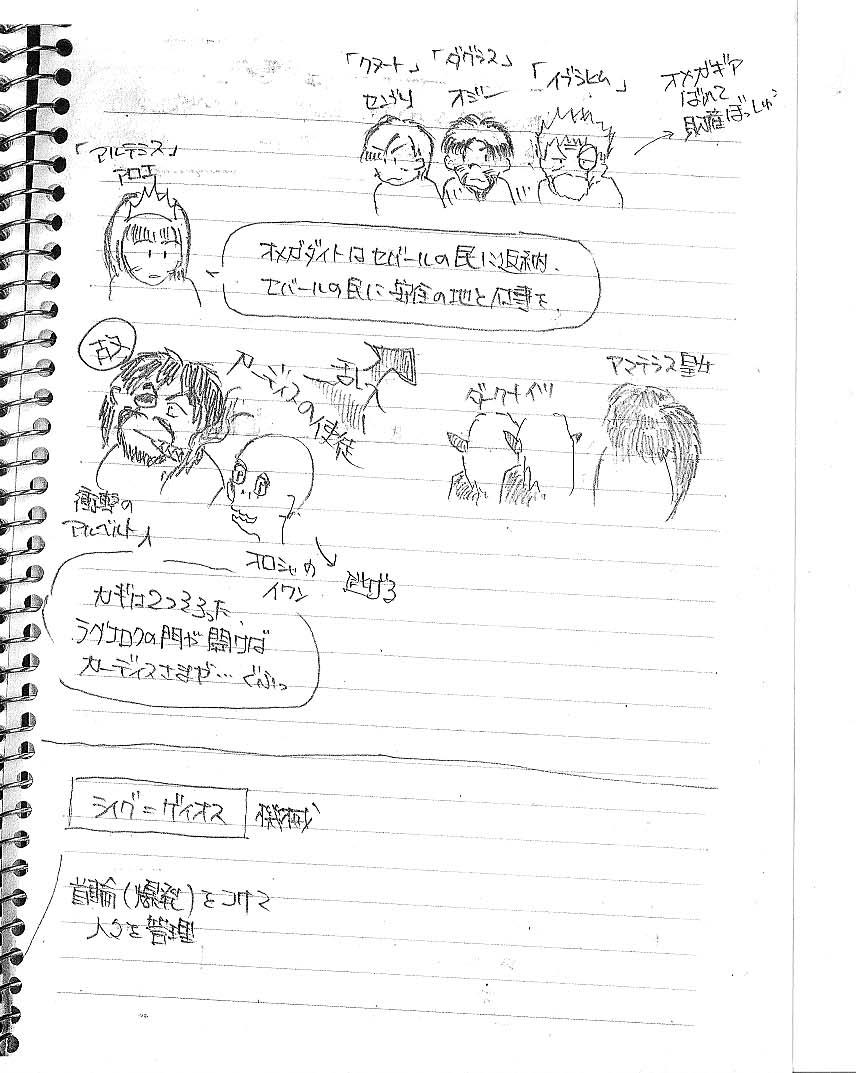 「クヌート」 「ダグラス」 「イブラヒム」
センブリ オジー
オメガギア
ばれて
財産ぼっしゅう
「アルテミス」
アロエ
オメガダイトはセバールの民に返納、
セバールの民に安全の地と仕事を
カーディスの使徒
ダークナイツ
アマテラス皇女
衝撃の
アルベルト
オロシャの
イワン
逃げる
カギは2つそろった、
ラグナロクの門や開けば
カーディスさまや…ぐふっ
ライグ=ゲイオス 機械
首輪(爆発)をつけて
人々を管理